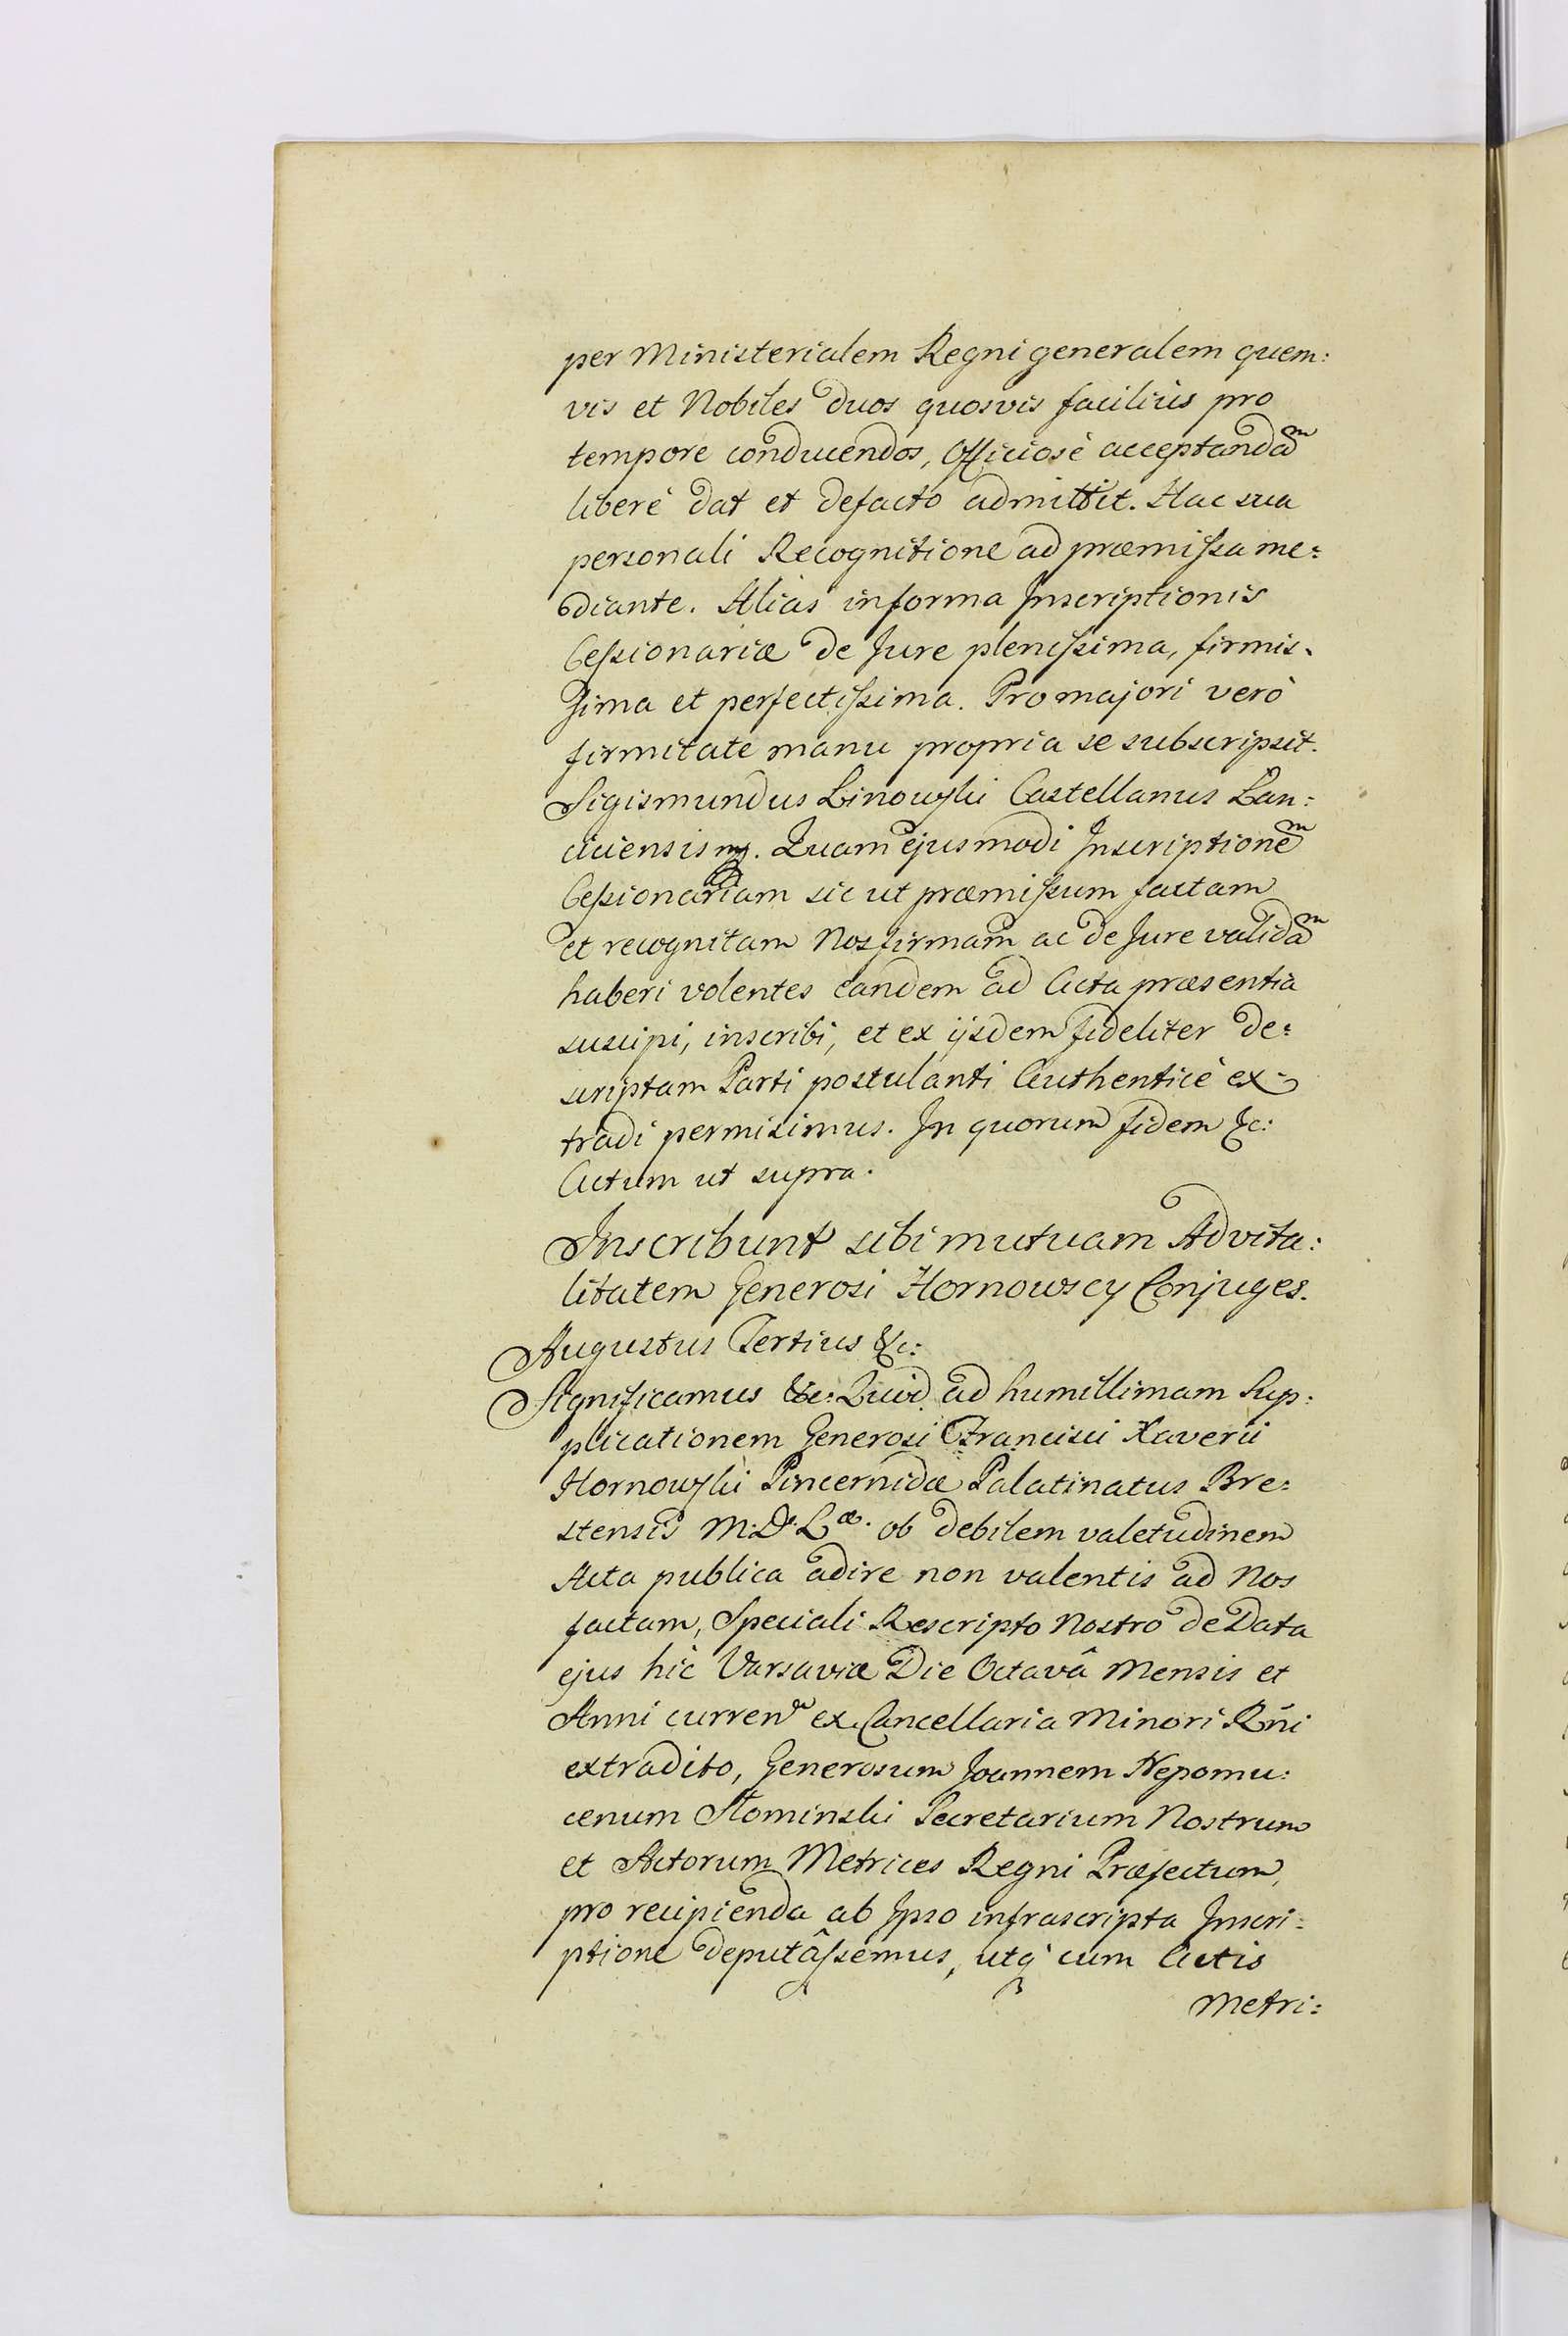 per Ministerialem Regni generalem quem:
vis et Nobiles duos quosvis faciliùs pro
tempore conducendos, Officiosè acceptandaᵐ
liberè dat et defacto admittit. Hac sua
personali Recognitione ad præmissa me:
diante. Aliàs in forma Inscriptionis
Cessionariæ de Jure plenissima, firmis:
sima et perfectissima. Pro majori verò
firmitate manu propria se subscripsit.
Sigismundus Linowski Castellanus Lan:
ciciensis mp. Quam ejusmodi Inscriptioneᵐ
Cessionariam sic ut præmissum factam
et recognitam Nos firmam ac de Jure validaᵐ
haberi volentes eandem ad Acta præsentia
suscipi, inscribi, et ex ijsdem fideliter de:
scriptam Parti postulanti Authenticè ex:
tradi permisimus. In quorum fidem &c:
Actum ut supra.
Inscribunt sibi mutuam Advita:
litatem Generosi Hornowscy Conjuges.
Augustus Tertius &c:
Significamus &c: Quia ad humillimam Sup:
plicationem Generosi Francisci Xaverii
Hornowski Pincernidæ Palatinatus Bre:
stensis M. D. Lᵃᵉ. ob debilem valetudinem
Acta publica adire non valentis ad Nos
factam, Speciali Rescripto Nostro de Data
ejus hîc Varsaviæ Die Octavâ Mensis et
Anni currenᵐ ex Cancellaria Minori Rñi
extradito, Generosum Joannem Nepomu:
cenum Słominski Secretarium Nostrum
et Actorum Metrices Regni Præfectum,
pro recipienda ab Ipso infrascripta Inscri:
ptione deputâssemus, utq́ cum Actis
Metri: